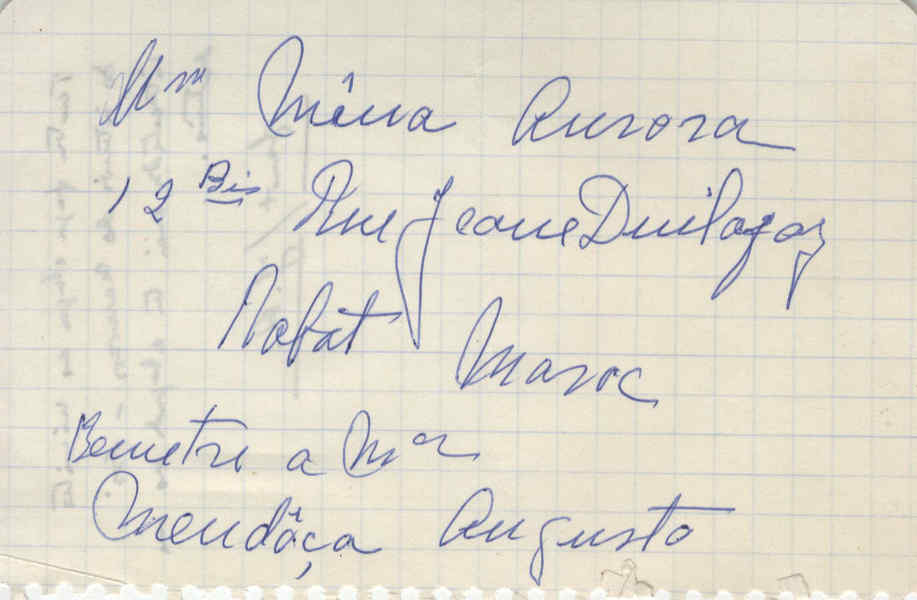 Mme Mêna Aurora
12 Bis Rue Jeane Duilafoz
Rabât Maroc
Remetre a Mor
Mendâça Augusto